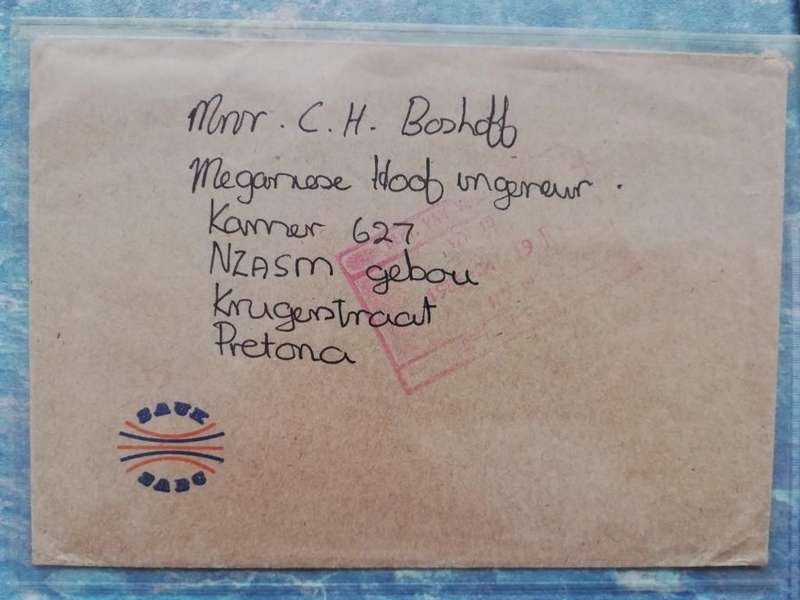 Mnr. C. H. Boshoff
Meganiese Hoof ingenieur.
Kamer 627
NZASM gebou
Krugerstraat
Pretoria
SAUK
SABC